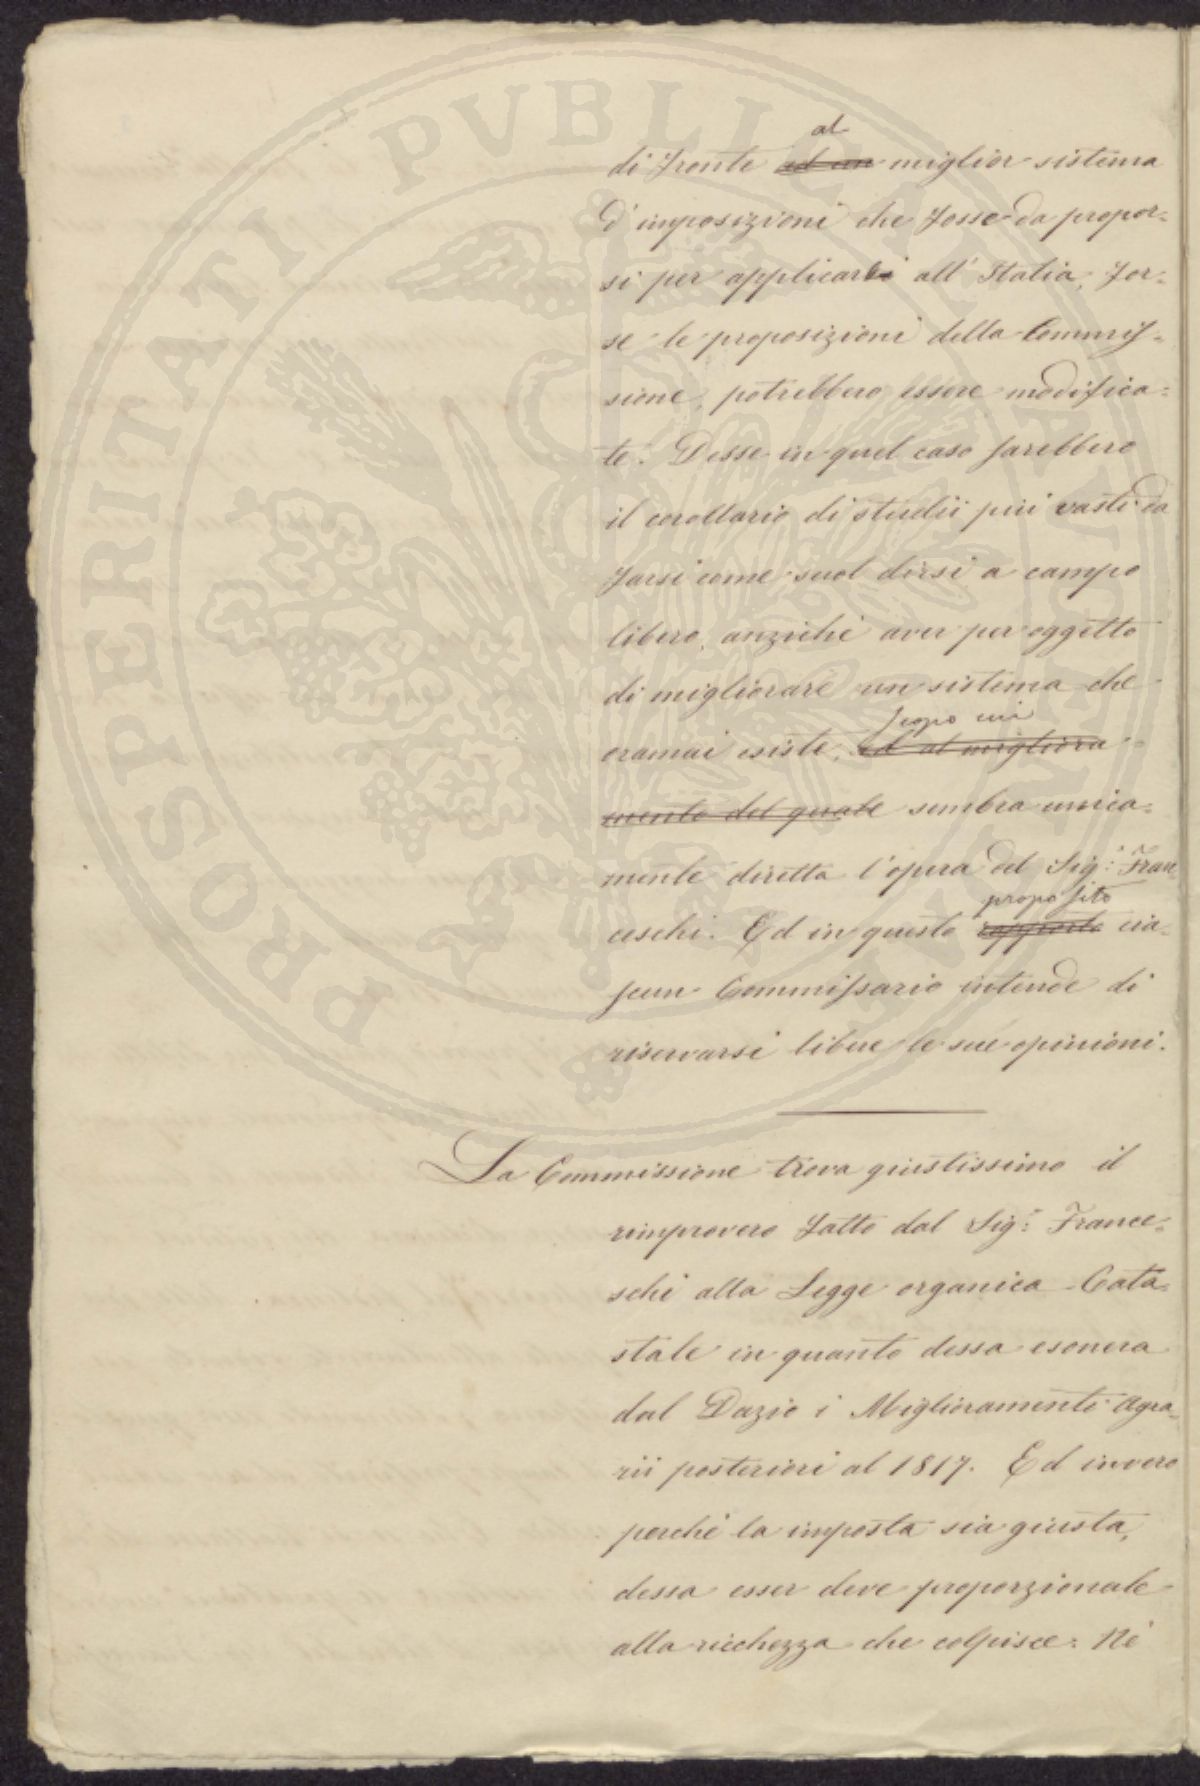 di fronte ~~ad un~~ al miglior sistema
d'imposizioni che fosse da propor=
si per applicarsi all'Italia, for=
se le proposizioni della Commis=
sione, potrebbero essere modifica=
te. Desse in quel caso sarebbero
il corollario di studii piú vasti da
farsi come suol dirsi a campo
libero, anzichè aver per oggetto
di migliorare un sistema che
oramai esiste, ~~ed al migliora=~~ scopo cui
~~mento del quale~~ sembra unica=
mente diretta l'opera del Sig.r Fran
ceschi. Ed in questo ~~rapporto~~ proposito cia=
scun Commissario intende di
riservarsi libere le sue opinioni.
La Commissione trova giustissimo il
rimprovero fatto dal Sig.r France=
schi alla Legge organica Cata=
stale in quanto dessa esonera
dal Dazio i Miglioramenti Agra=
rii posteriori al 1817. Ed invero
perchè la imposta sia giusta,
dessa esser deve proporzionale
alla ricchezza che colpisce: Nè
PROSPERITATI PVBLICAE AVGENDAE